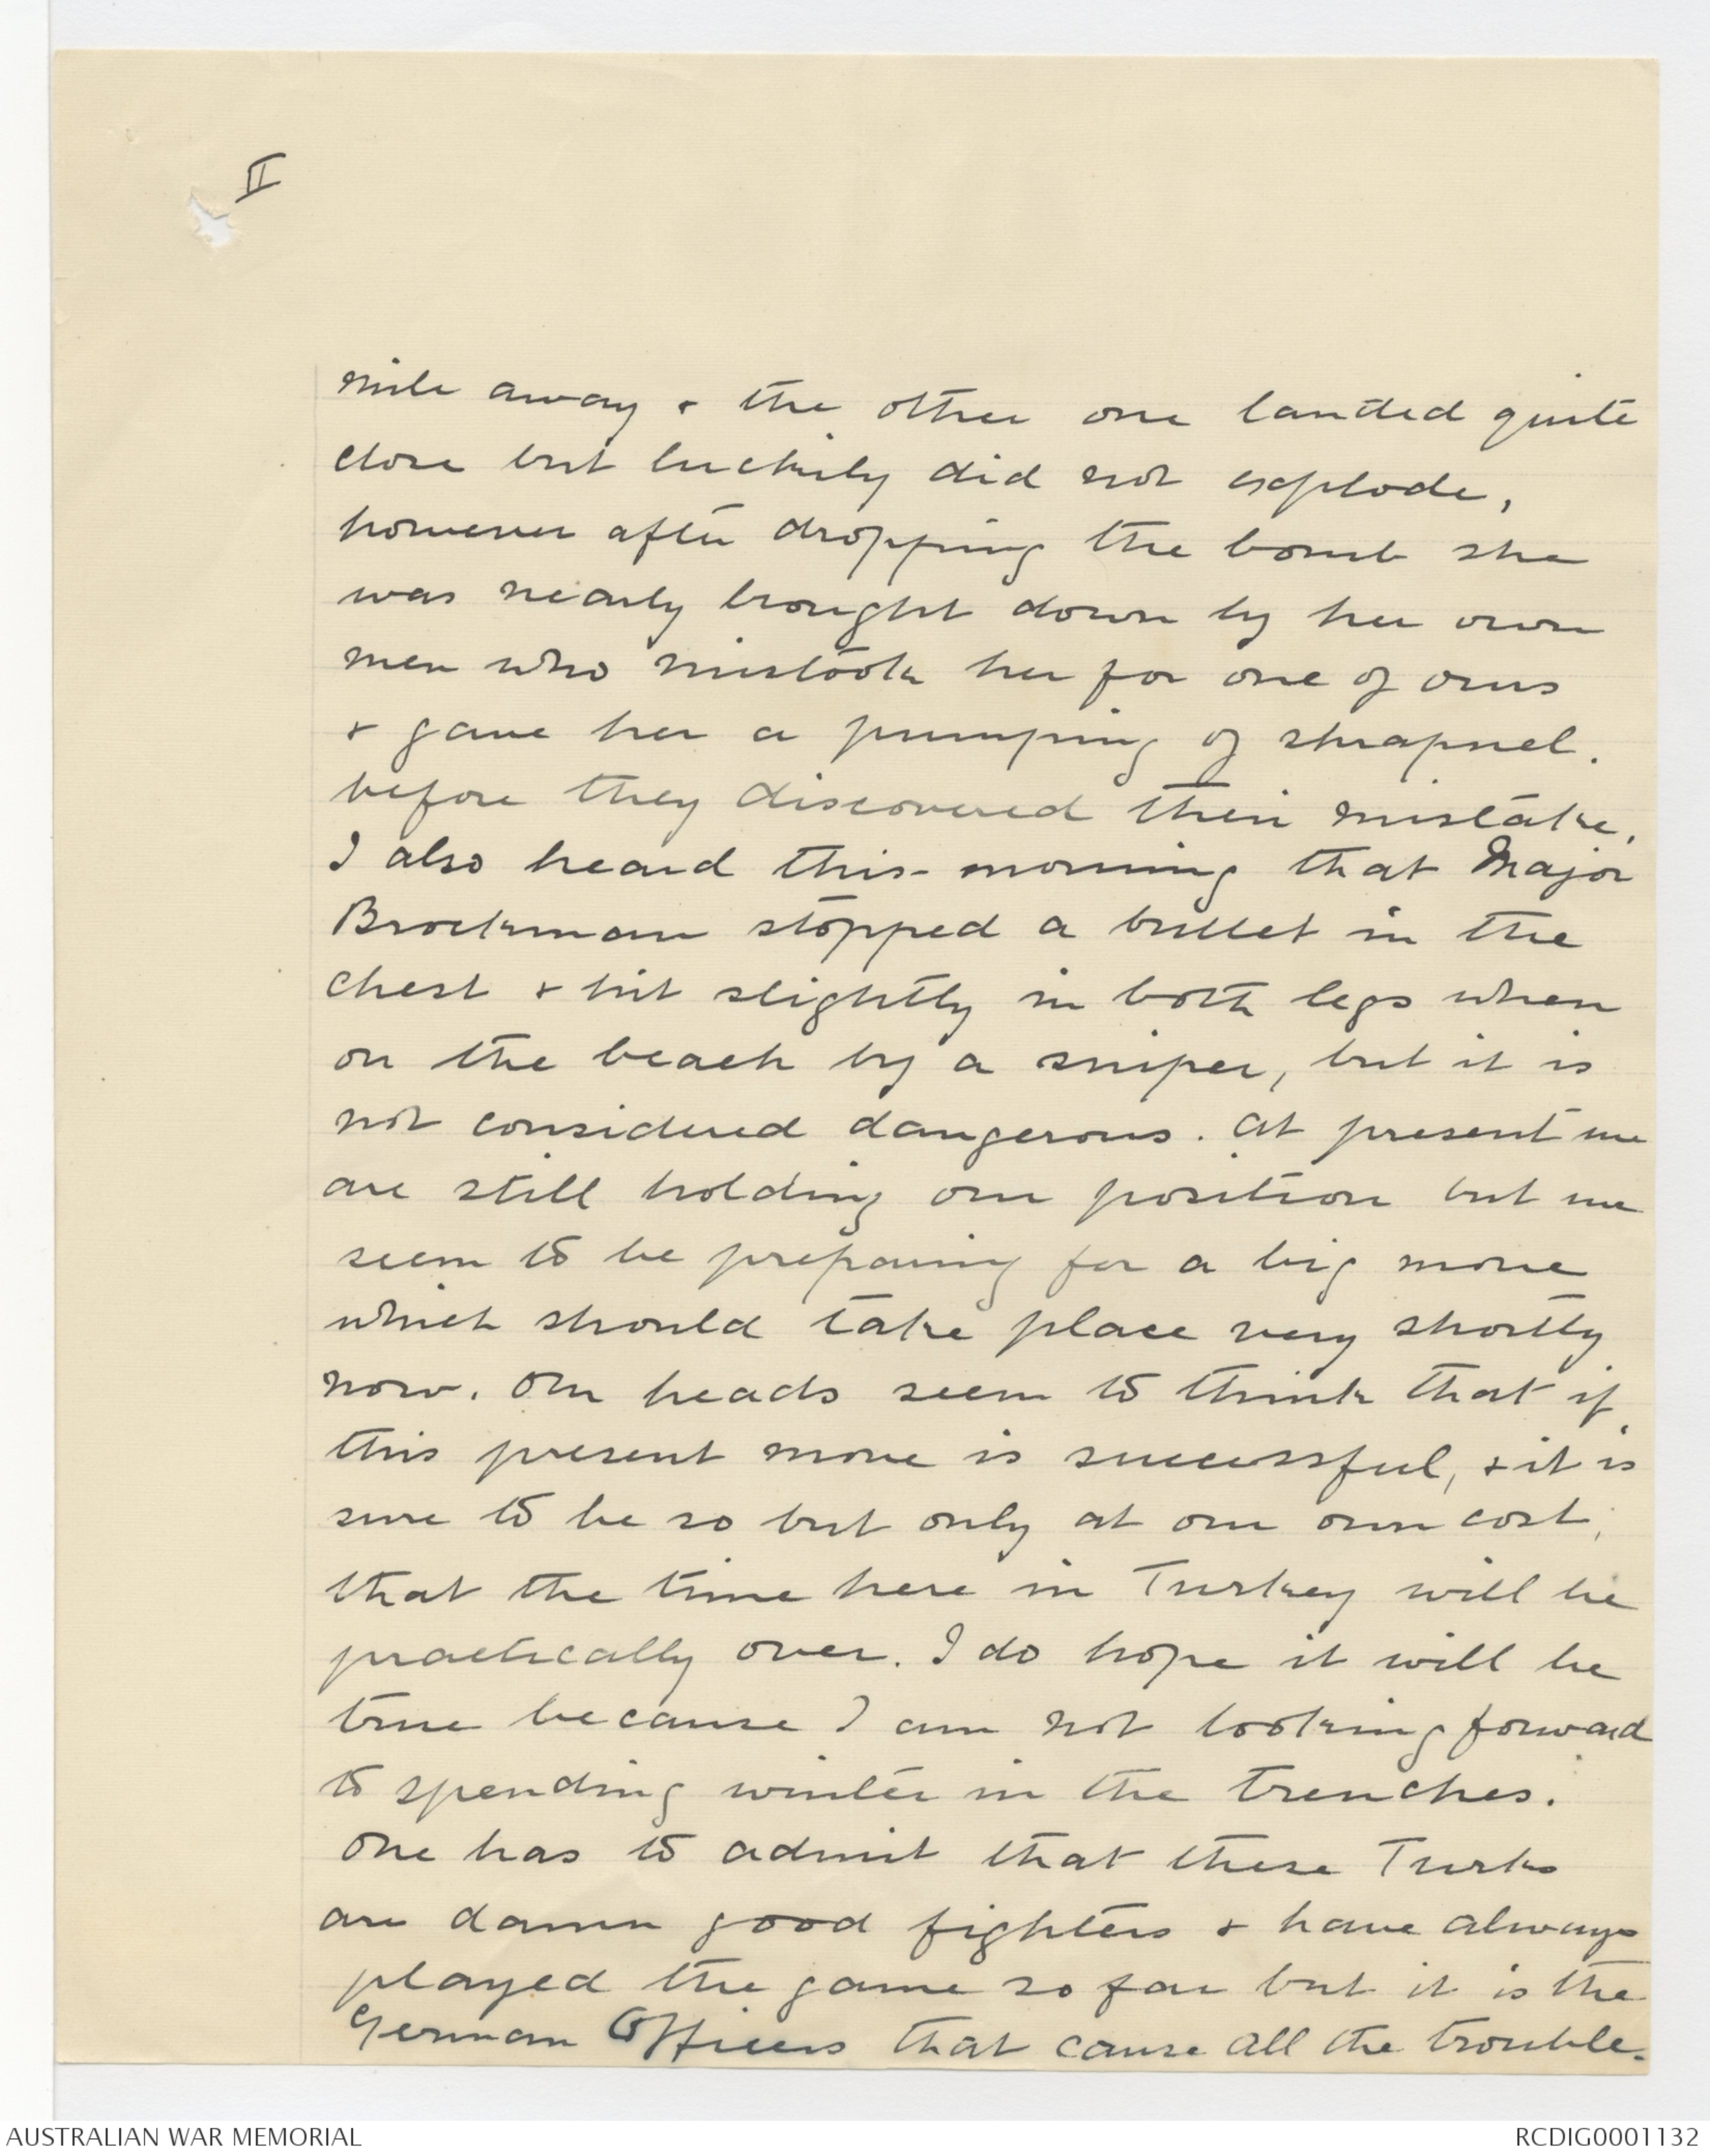 II
mile away & the other one landed quite
close but luckily did not explode,
however after dropping the bomb she
was nearly brought down by her own
men who mistook her for one of ours
& gave her a pumping of shrapnel.
before they discovered their mistake.
I also heard this morning that Major
Brockman stopped a bullet in the
chest & hit slightly in both legs when
on the beach by a sniper, but it is
not considered dangerous. At present we
are still holding our position but we
seem to be preparing for a big move
which should take place very shortly
now. Our heads seem to think that if
this present move is successful, & it is
sure to be so but only at our own cost,
that the time here in Turkey will be
practically over. I do hope it will be
true because I am not looking forward
to spending winter in the trenches.
One has to admit that these Turks
are damn good fighters & have always
played the game so far but it is the
German Officers that cause all the trouble.
AUSTRALIAN WAR MEMORIAL
RCDIG0001132